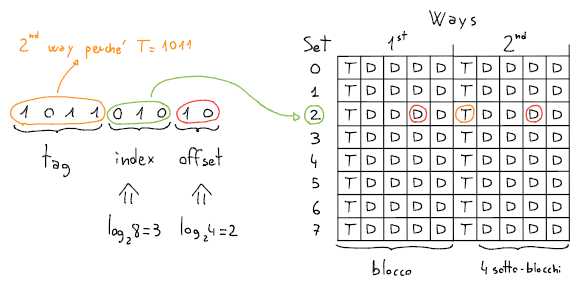 2nd way perché T = 1011
1 0 1 1 0 1 0 1 0
tag index offset
log₂8=3 log₂4=2
Ways
Set 1st 2nd
0 T D D D D T D D D D
1 T D D D D T D D D D
2 T D D D D T D D D D
3 T D D D D T D D D D
4 T D D D D T D D D D
5 T D D D D T D D D D
6 T D D D D T D D D D
7 T D D D D T D D D D
blocco 4 sotto-blocchi